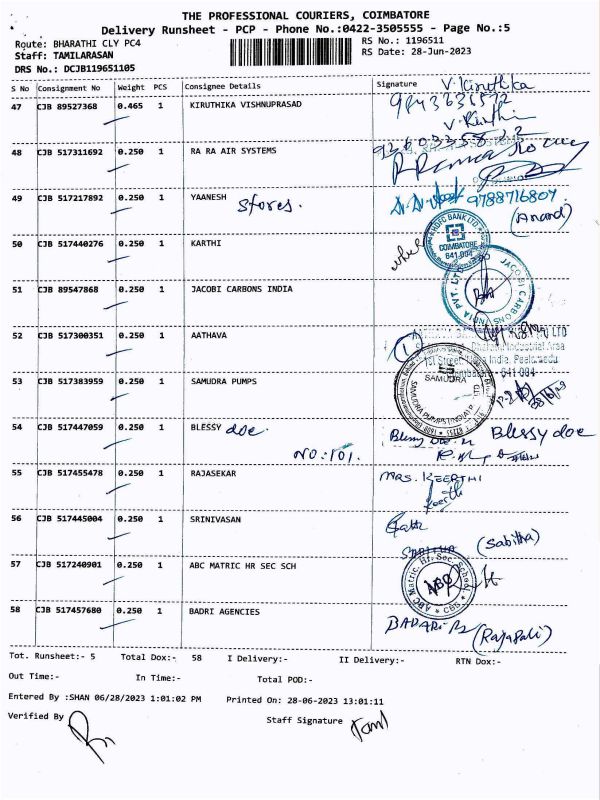 THE PROFESSIONAL COURIERS, COIMBATORE
Delivery Runsheet - PCP - Phone No.:0422-3505555 - Page No.:5
Route: BHARATHI CLY PC4
RS No.: 1196511
Staff: TAMILARASAN
RS Date: 28-Jun-2023
DRS No.: DCJB119651105
S No Consignment No Weight PCS Consignee Details Signature
V. Kiruthika
47 CJB 89527368 0.465 1 KIRUTHIKA VISHNUPRASAD
V. Kiruthi
48 CJB 517311692 0.250 1 RA RA AIR SYSTEMS
49 CJB 517217892 0.250 1 YAANESH stores. 9788716807
(Anand)
HDFC BANK LTD
COIMBATORE
641 004
50 CJB 517440276 0.250 1 KARTHI
51 CJB 89547868 0.250 1 JACOBI CARBONS INDIA
JACOBI CARBONS INDIA PVT. LTD
52 CJB 517300351 0.250 1 AATHAVA
PVT LTD
Industrial Area
1st Street
India, Peelamedu
641 004
53 CJB 517383959 0.250 1 SAMUDRA PUMPS
SAMUDRA
54 CJB 517447059 0.250 1 BLESSY doe. Blessy doe
NO:101.
55 CJB 517455478 0.250 1 RAJASEKAR MRS. KEERTHI
Keerth
56 CJB 517445004 0.250 1 SRINIVASAN
(Sabitha)
57 CJB 517240901 0.250 1 ABC MATRIC HR SEC SCH
ABC Matric. Hr. Sec. School
CBS
58 CJB 517457680 0.250 1 BADRI AGENCIES
Tot. Runsheet:- 5 Total Dox:- 58 I Delivery:- II Delivery:- RTN Dox:-
Out Time:- In Time:- Total POD:-
Entered By :SHAN 06/28/2023 1:01:02 PM Printed On: 28-06-2023 13:01:11
Verified By Staff Signature
Tamil